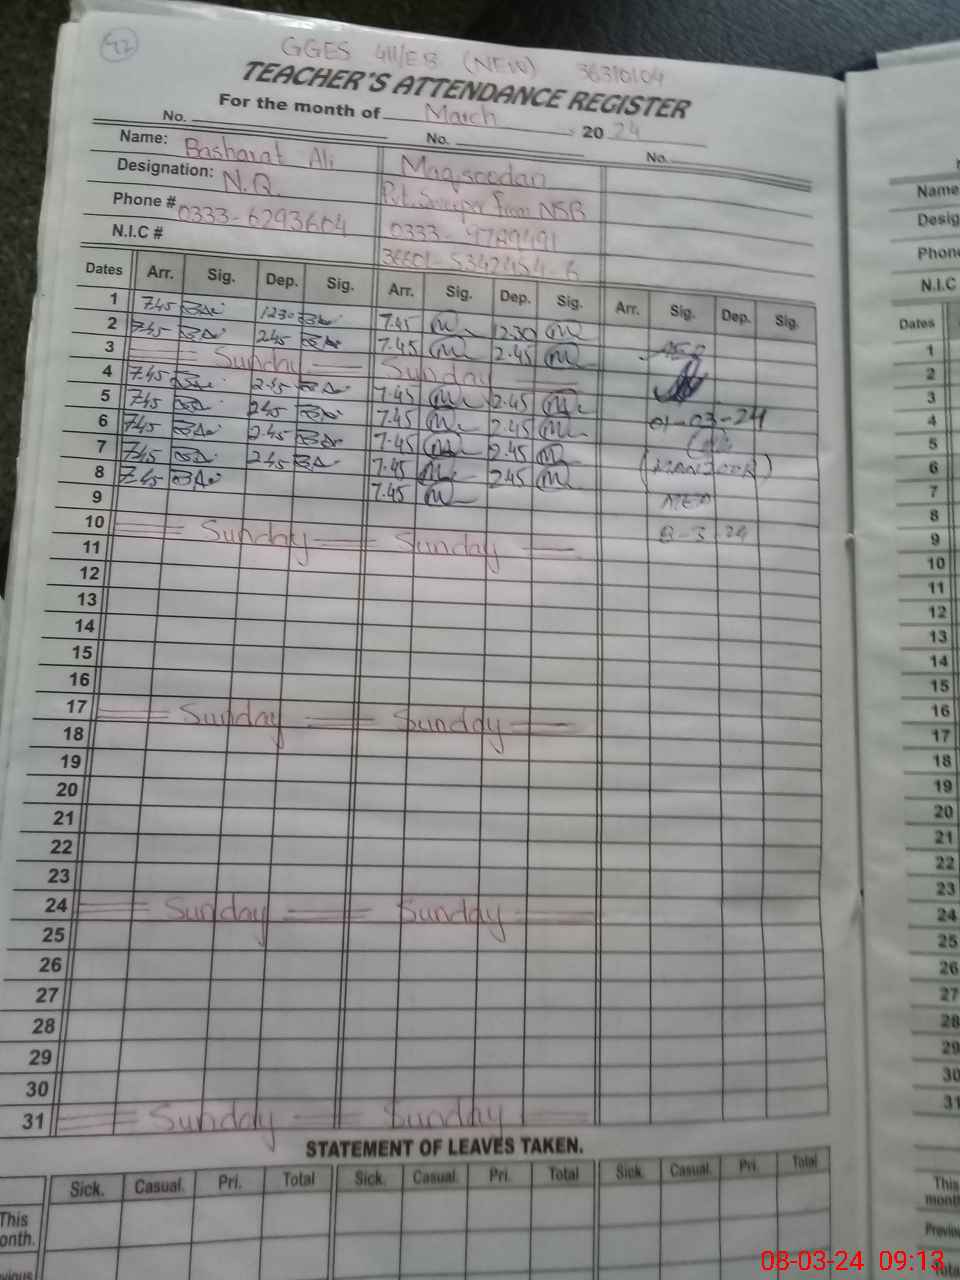 42
GGES 411/EB (NEW) 36310104
TEACHER'S ATTENDANCE REGISTER
For the month of March 2024
No. No. No.
Name: Basharat Ali Maqsoodan
Designation: N.Q. Pvt. Sweeper from NSB
Phone # 0333-6293604 0333-9789491
N.I.C # 36601-5342454-6
Dates Arr. Sig. Dep. Sig. Arr. Sig. Dep. Sig. Arr. Sig. Dep. Sig.
1 7.45 12.30 7.45 12.30
2 7.45 2.45 7.45 2.45
3 Sunday Sunday
4 7.45 2.45 7.45 2.45
5 7.45 2.45 7.45 2.45 01-03-24
6 7.45 2.45 7.45 2.45
7 7.45 2.45 7.45 2.45
8 7.45 7.45
9 8-3-24
10 Sunday Sunday
11
12
13
14
15
16
17 Sunday Sunday
18
19
20
21
22
23
24 Sunday Sunday
25
26
27
28
29
30
31 Sunday Sunday
STATEMENT OF LEAVES TAKEN.
Sick. Casual. Pri. Total Sick. Casual. Pri. Total Sick. Casual. Pri. Total
This
onth.
vious
Name
Desig
Phone
N.I.C
Dates
1
2
3
4
5
6
7
8
9
10
11
12
13
14
15
16
17
18
19
20
21
22
23
24
25
26
27
28
29
30
31
This
month
Previou
Tota
08-03-24 09:13